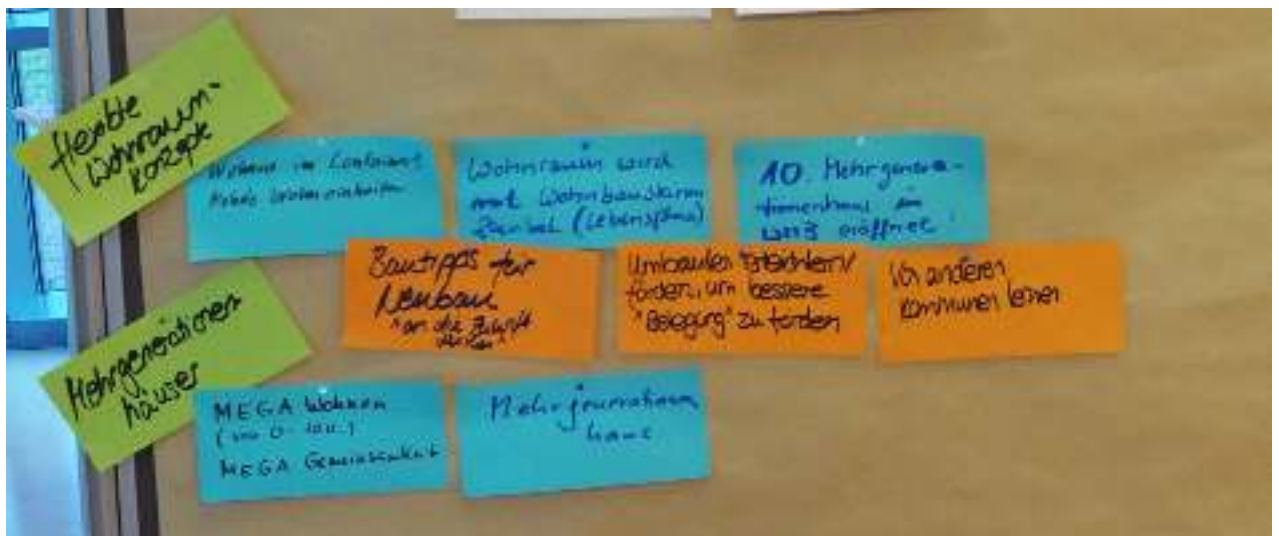 flexible
Wohnraum-
konzepte
Wohnen im Container
Mobile Wohneinheiten
Wohnraum wird
mit Wohnbaustein
flexibel (Lebensphase)
10. Mehrgenera-
tionenhaus in
eröffnet
Bautipps für
Neubau
"an die Zukunft
denken"
Umbauten erleichtern/
fördern, um bessere
"Belegung" zu fördern
Von anderen
Kommunen lernen
Mehrgenerationen
häuser
MEGA Wohnen
(von 0-100..)
MEGA Gemeinsamkeit
Mehrgenerationen
haus